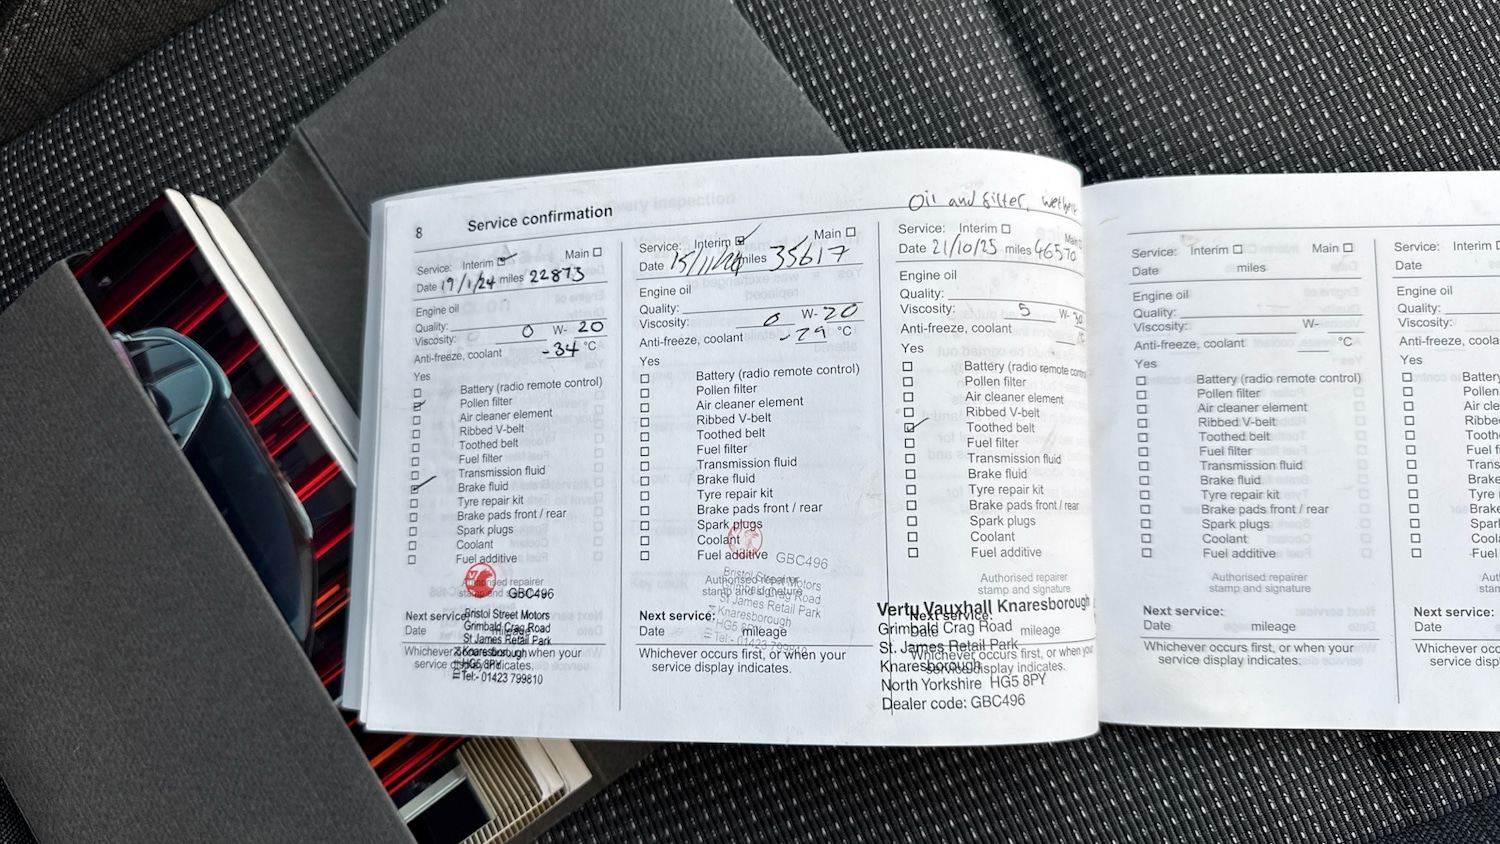 8 Service confirmation
Service: Interim Main
Date 19/1/24 miles 22873
Engine oil
Quality:
Viscosity: 0 W- 20
Anti-freeze, coolant -34 °C
Yes
Battery (radio remote control)
Pollen filter
Air cleaner element
Ribbed V-belt
Toothed belt
Fuel filter
Transmission fluid
Brake fluid
Tyre repair kit
Brake pads front / rear
Spark plugs
Coolant
Fuel additive
Authorised repairer
stamp and signature
GBC496
Next service:
Date mileage
Whichever occurs first, or when your
service display indicates.
Bristol Street Motors
Grimbald Crag Road
St James Retail Park
Knaresborough
HG5 8PY
Tel:- 01423 799810
Service: Interim Main
Date 15/11/24 miles 35617
Engine oil
Quality:
Viscosity: 0 W- 20
Anti-freeze, coolant -29 °C
Yes
Battery (radio remote control)
Pollen filter
Air cleaner element
Ribbed V-belt
Toothed belt
Fuel filter
Transmission fluid
Brake fluid
Tyre repair kit
Brake pads front / rear
Spark plugs
Coolant
Fuel additive
GBC496
Authorised repairer
stamp and signature
Bristol Street Motors
Grimbald Crag Road
St James Retail Park
Knaresborough
HG5 8PY
Tel:- 01423 799810
Next service:
Date mileage
Whichever occurs first, or when your
service display indicates.
Oil and filter, wetbelt
Service: Interim Main
Date 21/10/25 miles 46570
Engine oil
Quality:
Viscosity: 5 W- 30
Anti-freeze, coolant °C
Yes
Battery (radio remote control)
Pollen filter
Air cleaner element
Ribbed V-belt
Toothed belt
Fuel filter
Transmission fluid
Brake fluid
Tyre repair kit
Brake pads front / rear
Spark plugs
Coolant
Fuel additive
Authorised repairer
stamp and signature
Next service:
Date mileage
Whichever occurs first, or when your
service display indicates.
Vertu Vauxhall Knaresborough
Grimbald Crag Road
St. James Retail Park
Knaresborough
North Yorkshire HG5 8PY
Dealer code: GBC496
Service: Interim Main
Date miles
Engine oil
Quality:
Viscosity: W-
Anti-freeze, coolant °C
Yes
Battery (radio remote control)
Pollen filter
Air cleaner element
Ribbed V-belt
Toothed belt
Fuel filter
Transmission fluid
Brake fluid
Tyre repair kit
Brake pads front / rear
Spark plugs
Coolant
Fuel additive
Authorised repairer
stamp and signature
Next service:
Date mileage
Whichever occurs first, or when your
service display indicates.
Service: Interim
Date
Engine oil
Quality:
Viscosity:
Anti-freeze, coola
Yes
Battery
Pollen
Air cle
Ribbe
Tooth
Fuel f
Trans
Brake
Tyre r
Brake
Spark
Coola
Fuel
Next service:
Date
Whichever occ
service disp